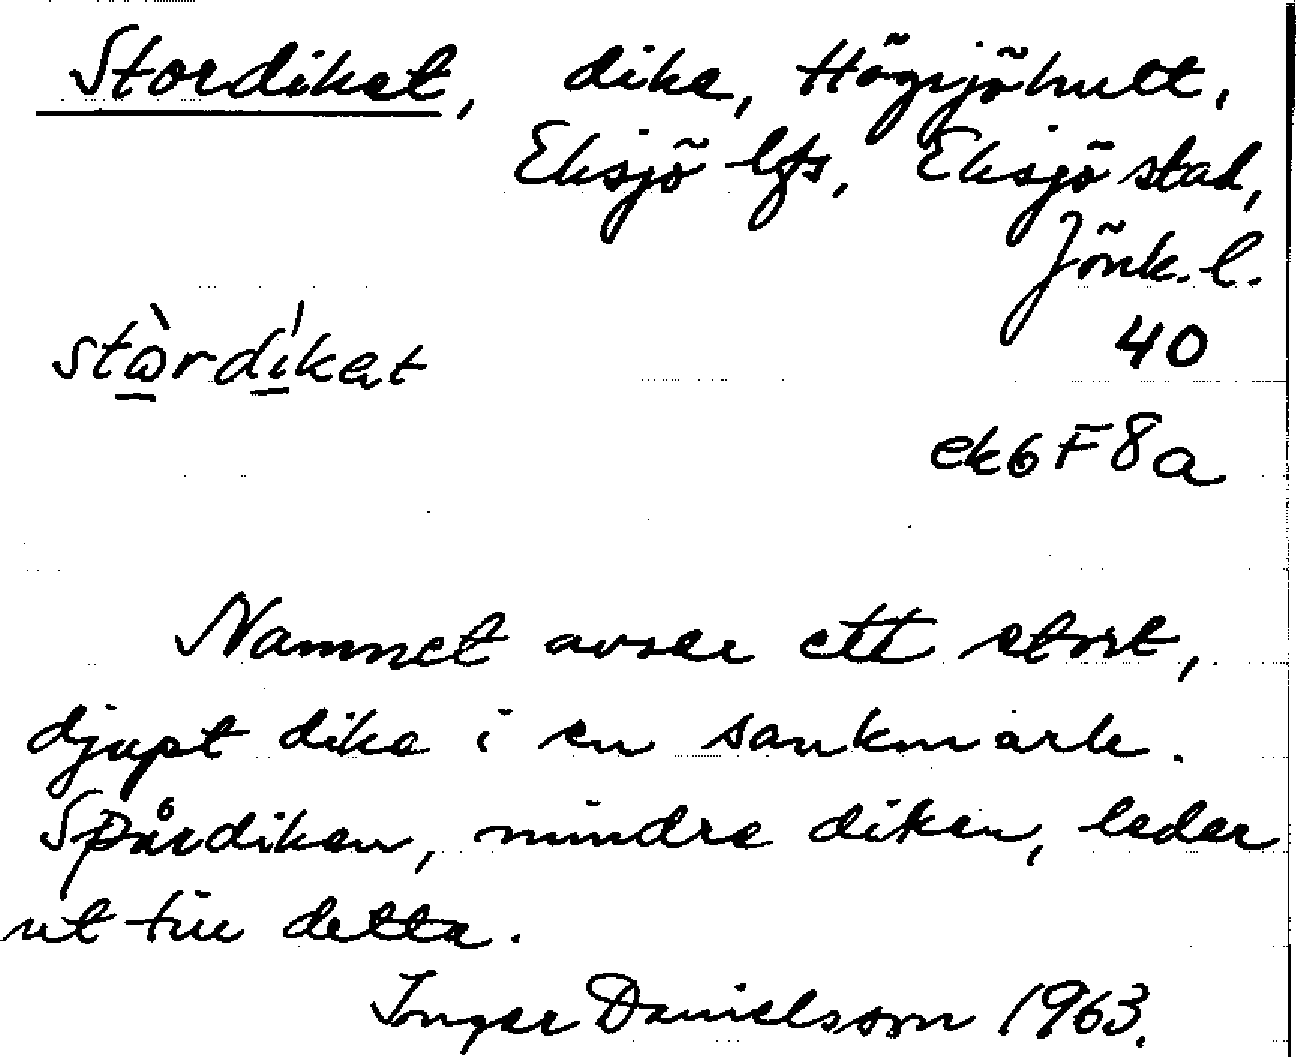 Stordiket, dike, Högsjöhult,
Eksjö lfs, Eksjö stad,
Jönk. l.
stòrdíkat
40
ek6F8a
Namnet avser ett stort,
djupt dike i en sankmark.
Spårdiken, mindre diken, leder
ut till detta.
Inger Danielsson 1963.